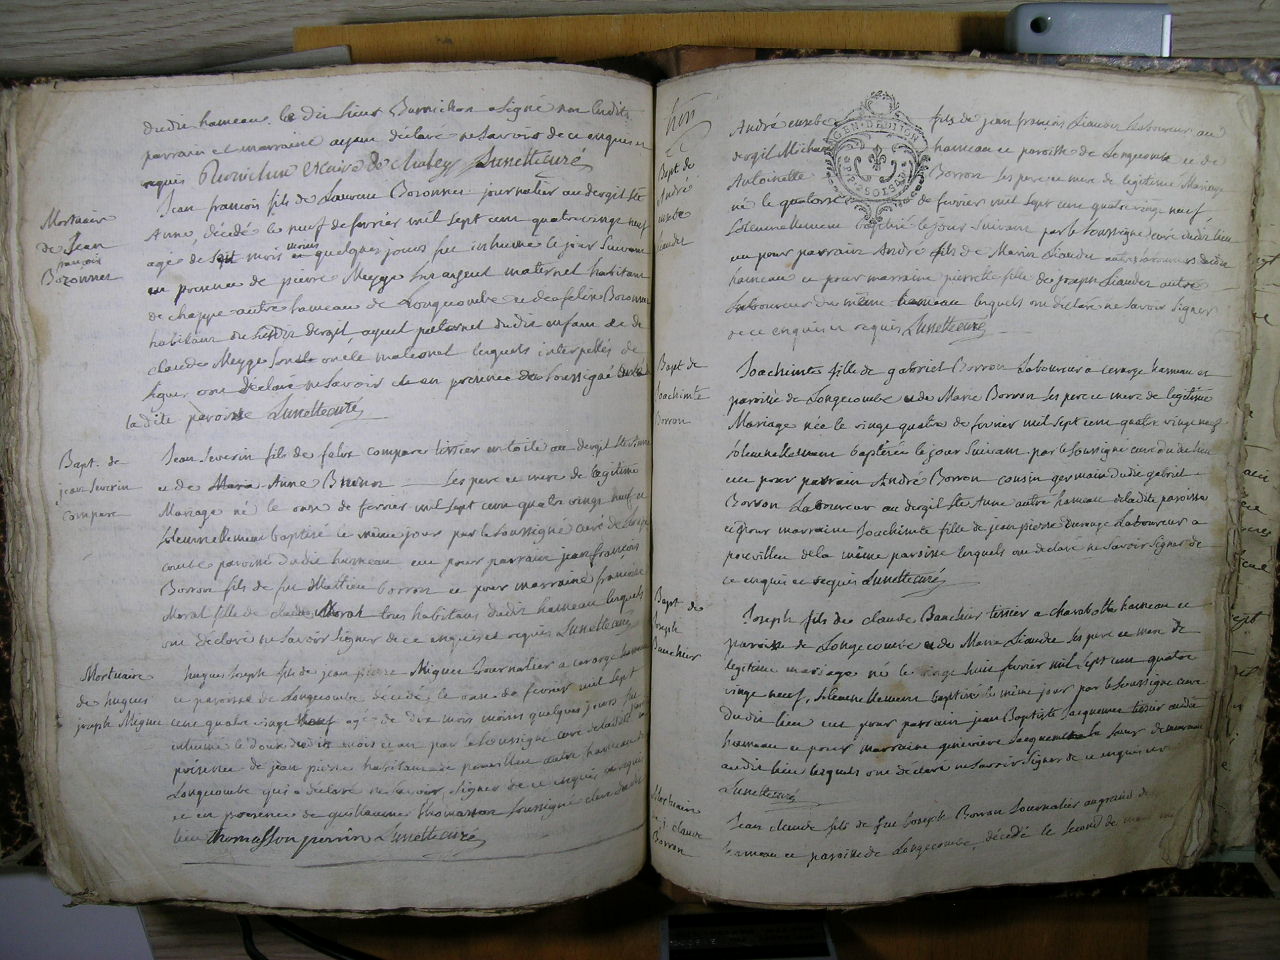 dudit hameau le dit sieur Burnichon a signé non lesdits
parrain et marraine ayant déclaré ne savoir de ce enquis et
requis Burnichon vicaire de Chaley Lunette curé
Mortuaire
de Jean
françois
Bozonnet
Jean françois fils de Bozonnet journalier au dergit Ste
Anne, décédé le neuf de fevrier mil sept cent quatre vingt neuf
agé de sept mois moins quelques jours fut inhumé le jour suivant
en presence de pierre Megge son maternel habitant
de chappe autre hameau de Longecombe et de felix Bozonnet
habitant du susdit dergit, ayeul paternel dudit enfant et de
claude Megge son oncle maternel lesquels interpellés de
signer ont déclaré ne savoir et en presence du soussigné curé
la dite paroisse Lunette curé
Bapt. de
jean Severin
compare
Jean Severin fils de felix compare tissier en toile au dergit Ste Anne
et de Anne les pere et mere de legitime
Mariage né le onze de fevrier mil sept cent quatre vingt neuf et
solemnellement baptisé le même jour par le soussigné curé de Longe
combe paroisse dudit hameau eut pour parrain jean françois
Borron fils de feu Mathieu borron et pour marraine françoise
Morat fille de claude Morat tous habitans dudit hameau lesquels
ont déclaré ne savoir signer de ce enquis et requis Lunette curé
Mortuaire
de hugues
joseph Miguet
hugues joseph fils de jean pierre Miguet Journalier a cerarge hameau
et paroisse de Longecombe décédé le onze de fevrier mil sept
cent quatre vingt neuf agé de dix mois moins quelques jours fut
inhumé le douze dudit mois et an par le soussigné curé de ladite paroisse
présence de jean pierre habitant de pouvillen autre hameau de
Longecombe qui a déclaré ne savoir signer de ce enquis et requis
et en presence de guillaume thomasson soussigné clerc dudit
lieu thomasson perrin Lunette curé
huit
Bapt de
André
eusebe
Liaudet
GEN. D
2 SOLS
André eusebe fils de jean françois Liaudet Laboureur au
dergit Michaux hameau et paroisse de Longecombe et de
Antoinette Borron les pere et mere de legitime Mariage
né le quatorze de fevrier mil sept cent quatre vingt neuf
solemnellement baptisé le jour suivant par le soussigné curé dudit lieu
eut pour parrain André fils de Marin Liaudet autre laboureur dudit
hameau et pour marraine pierrette fille de joseph Liaudet autre
laboureur du même hameau lesquels ont déclaré ne savoir signer
de ce enquis et requis Lunette curé
Bapt de
Joachimte
Borron
Joachimte fille de gabriel Borron Laboureur a cerarge hameau et
paroisse de Longecombe et de Marie Borron les pere et mere de legitime
Mariage née le vingt quatre de fevrier mil sept cent quatre vingt neuf
solemnellement baptisée le jour suivant par le soussigné curé du dit lieu
eut pour parrain André Borron cousin germain dudit gabriel
Borron Laboureur au dergit Ste Anne autre hameau de ladite paroisse
et pour marraine Joachimte fille de jean pierre Laboureur a
pouvillen de la même paroisse lesquels ont declaré ne savoir signer de
ce enquis et requis Lunette curé
Bapt de
Joseph
Bauchier
Joseph fils de claude Bauchier tissier a charabotte hameau et
paroisse de Longecombe et de Marie Liaudet les pere et mere de
legitime mariage né le vingt huit fevrier mil sept cent quatre
vingt neuf, solemnellement baptisé le même jour par le soussigné curé
dudit lieu eut pour parrain jean Baptiste Jacquemet tissier audit
hameau et pour marraine genevieve Jacquemet sa soeur demeurant
audit lieu lesquels ont déclaré ne savoir signer de ce enquis et
Lunette curé
Mortuaire
de j. claude
Borron
Jean claude fils de feu Joseph Borron Journalier au grand
hameau et paroisse de Longecombe, décédé le second de